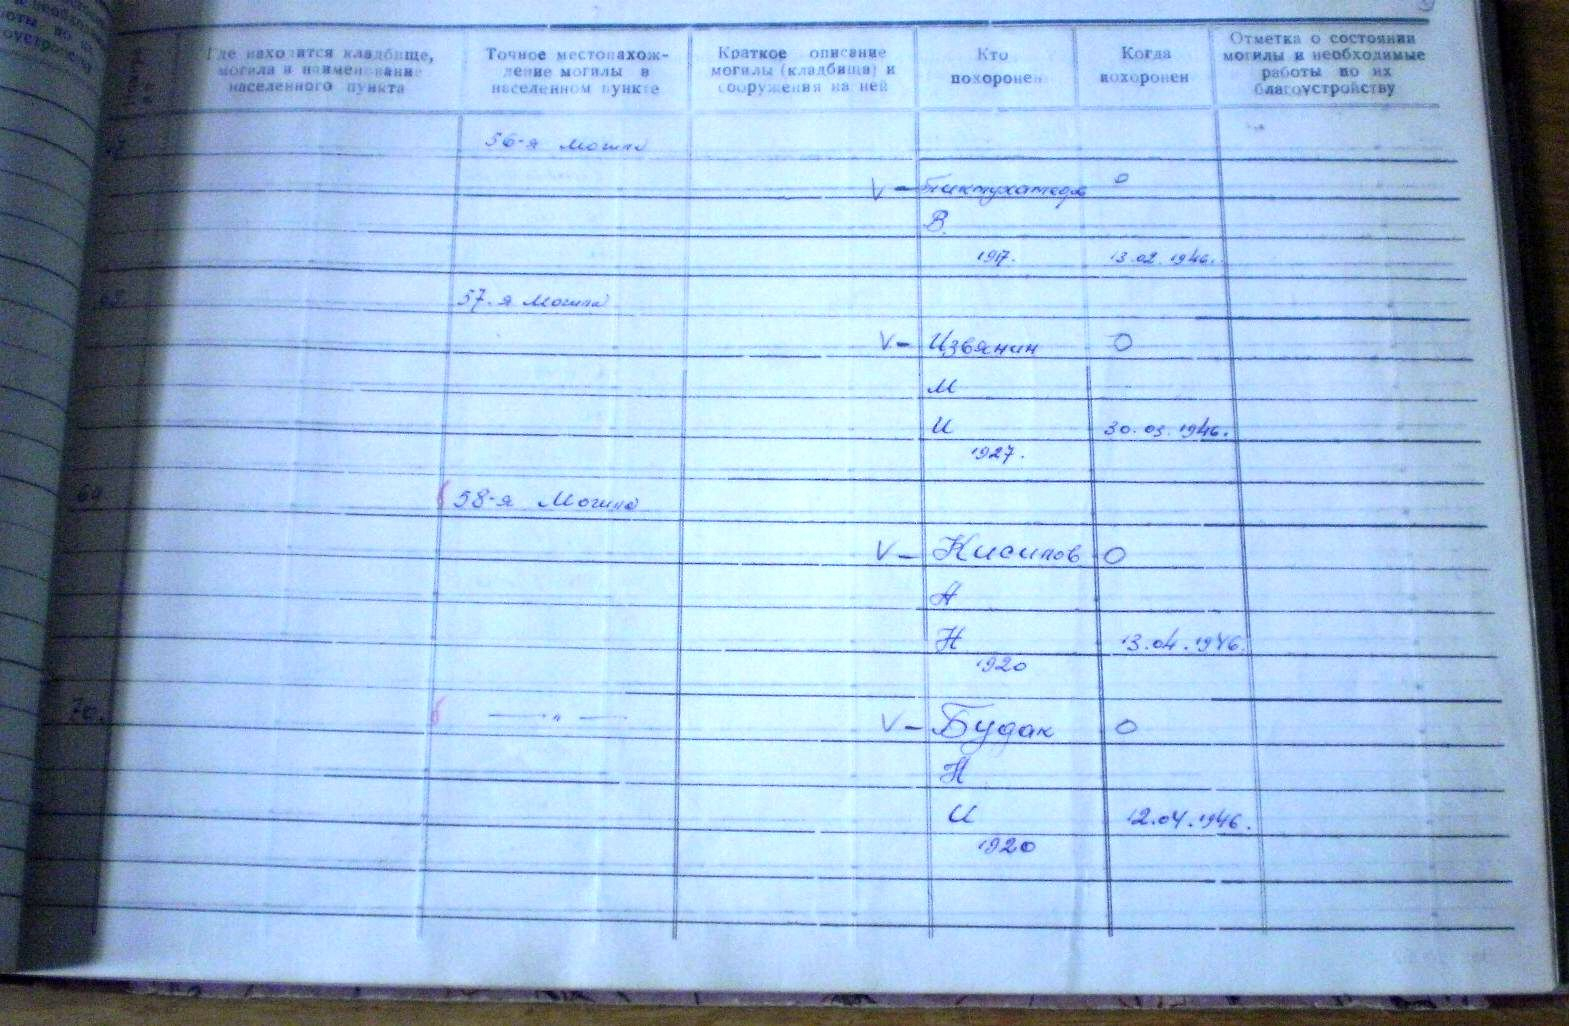 Где находится кладбище, могила и наименование населенного пункта
Точное местонахож-
дение могилы в
населенном пункте
Краткое описание
могилы (кладбища) и
сооружения на ней
Кто
похоронен
Когда
похоронен
Отметка о состоянии
могилы и необходимые
работы по их
благоустройству
56-я могила
V –
В
1917. 13.02.1946.
57-я Могила
V – Извянин О
М
И 30.03.1946.
1927.
58-я Могила
V – Кисилов О
А
Н 13.04.1946.
1920
70. — " — V – Будак О
Н
И 12.04.1946.
1920